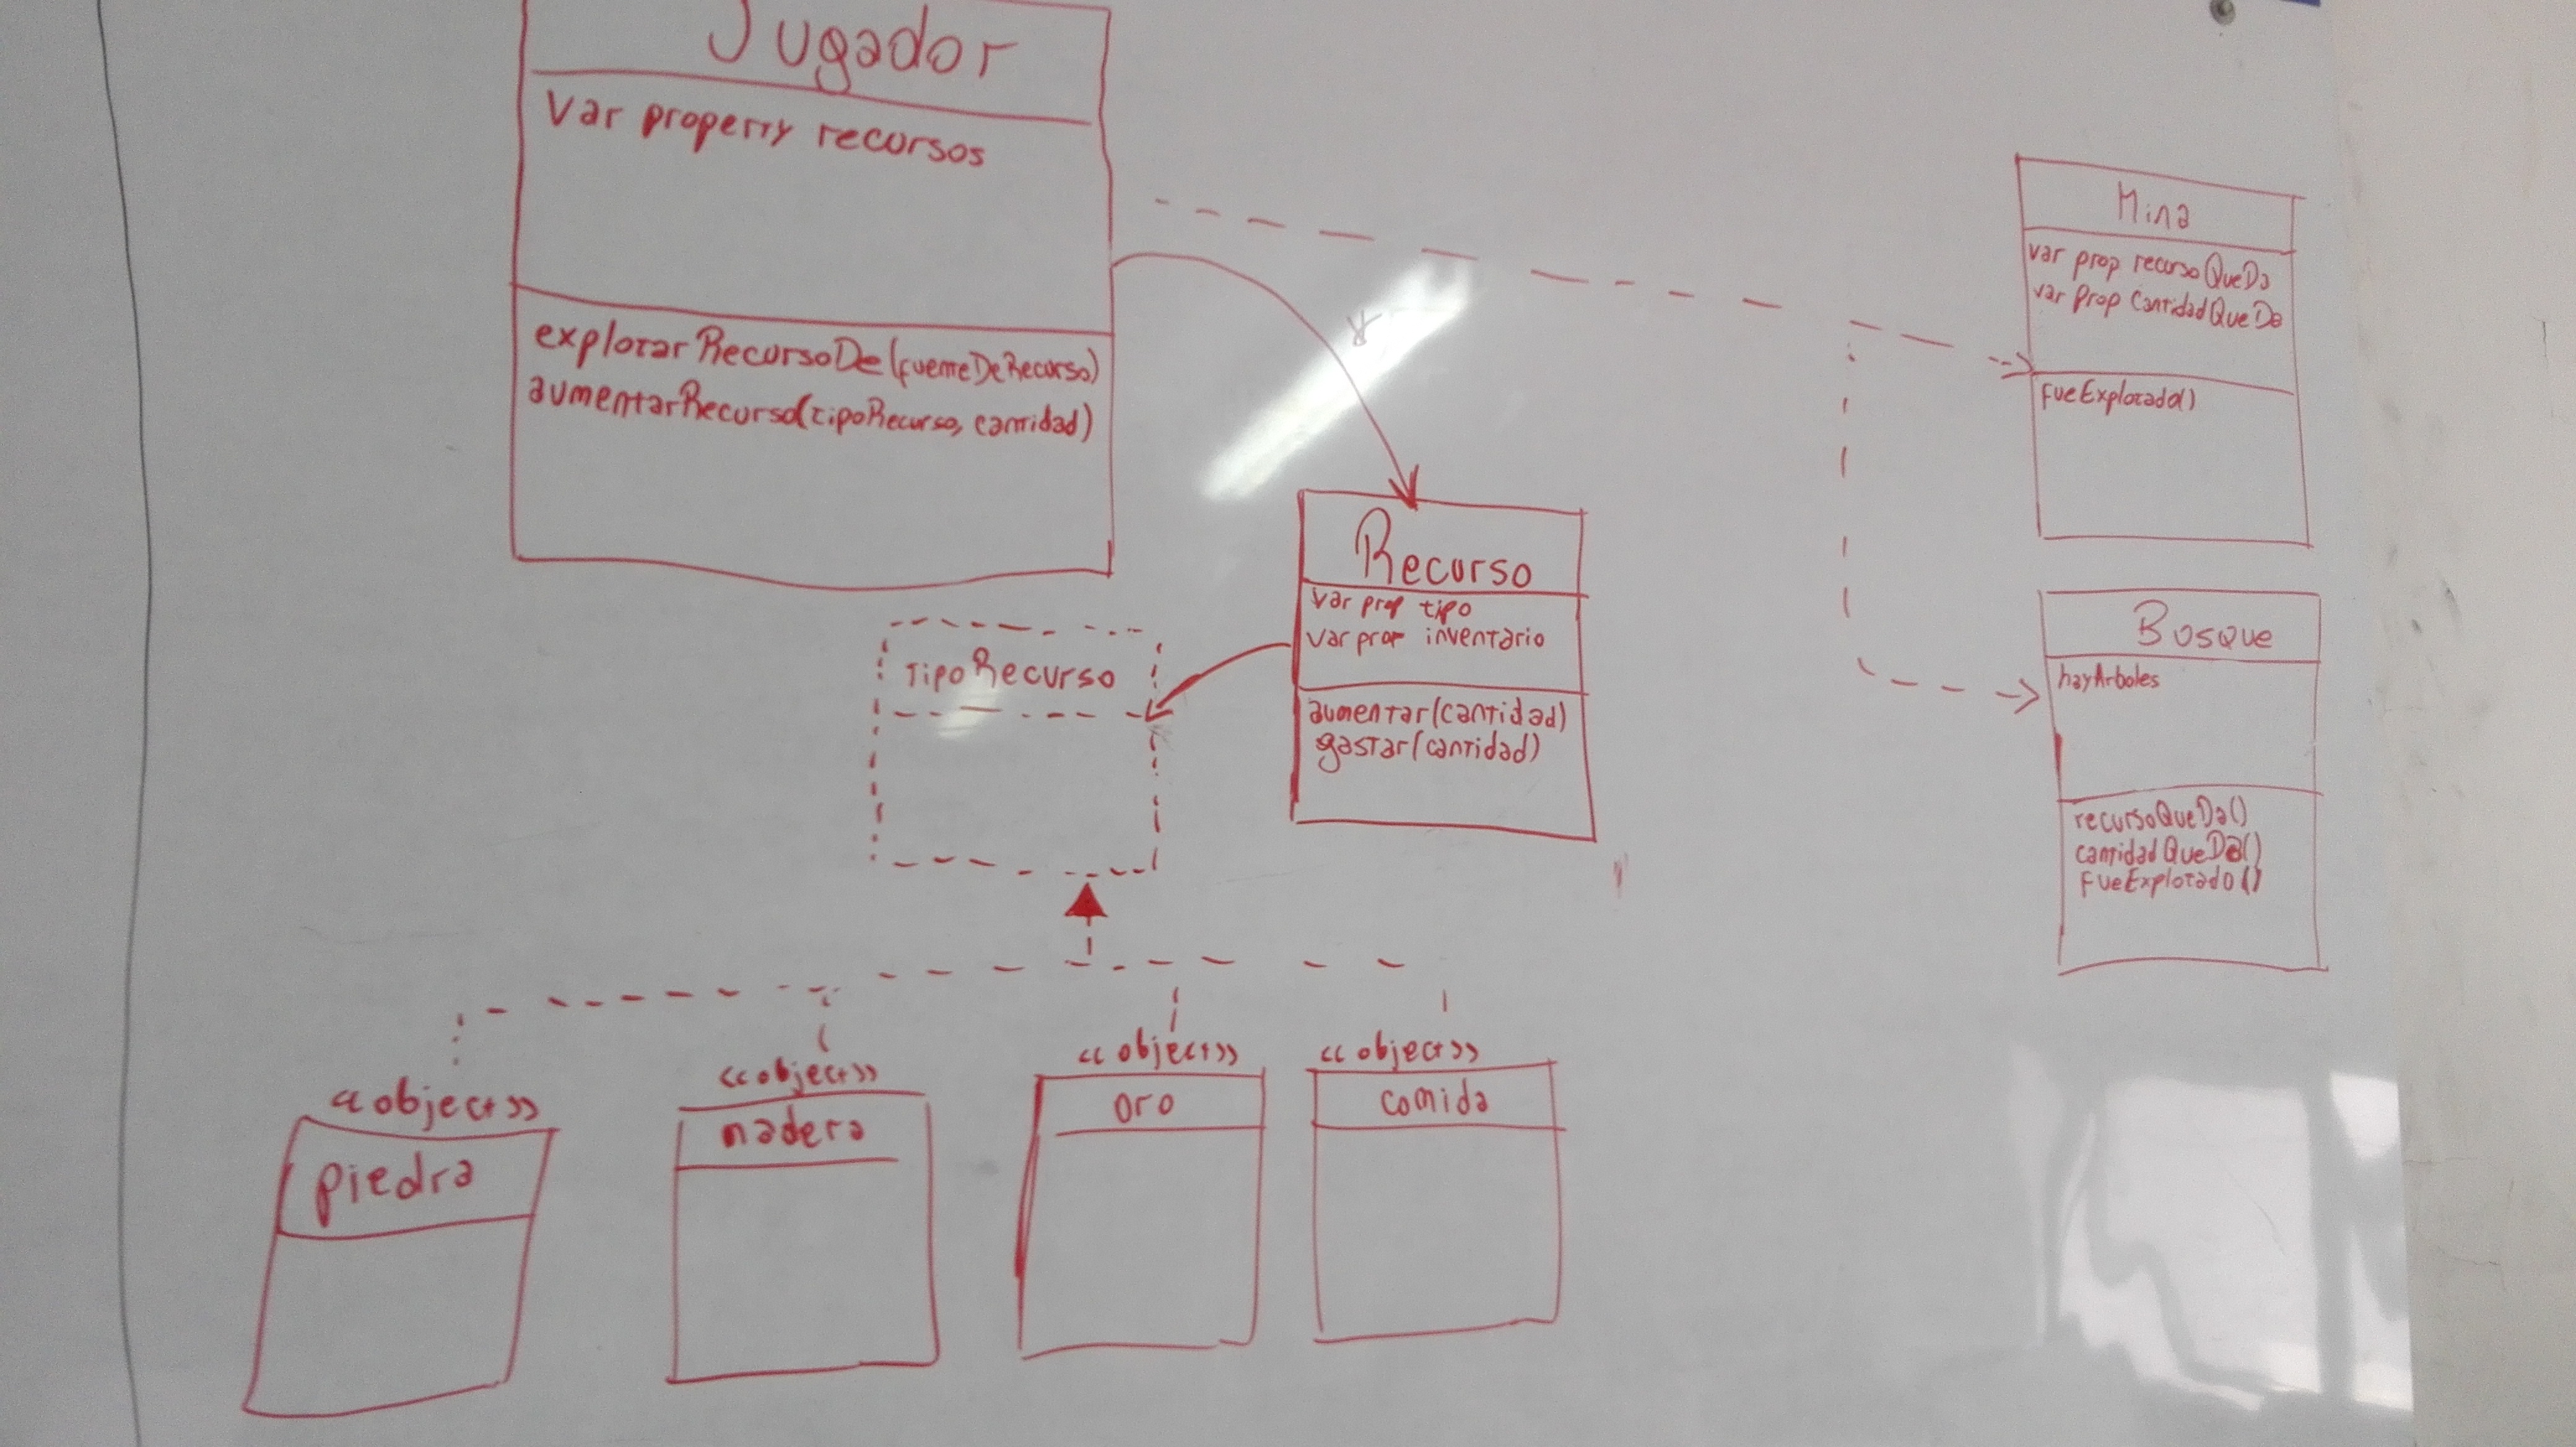 Jugador
Var property recursos
explotarRecursoDe(fuenteDeRecurso)
aumentarRecurso(tipoRecurso, cantidad)
Mina
var prop recursoQueDa
var prop cantidadQueDa
fueExplotada()
*
Recurso
var prop tipo
var prop inventario
aumentar(cantidad)
gastar(cantidad)
TipoRecurso
Bosque
hayArboles
recursoQueDa()
cantidadQueDa()
fueExplotado()
<<object>>
piedra
<<object>>
madera
<<object>>
oro
<<object>>
comida